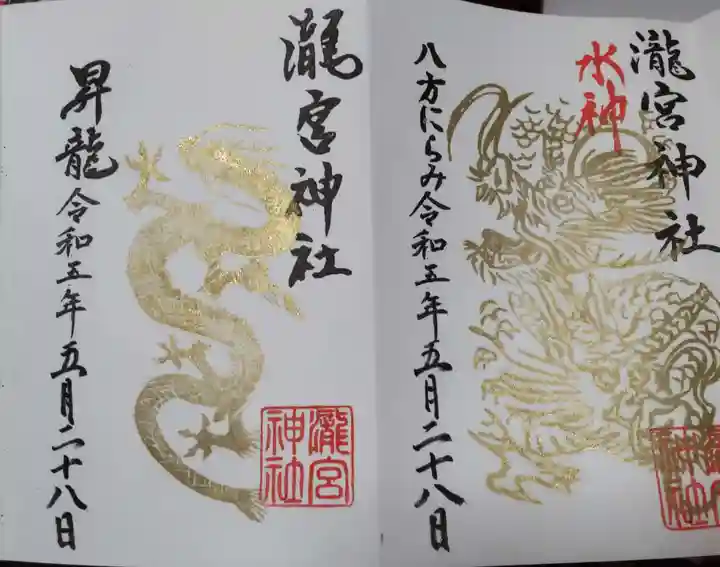 瀧宮神社
水神
八方にらみ 令和五年五月二十八日
瀧宮神社
瀧宮神社
昇龍 令和五年五月二十八日
瀧宮
神社